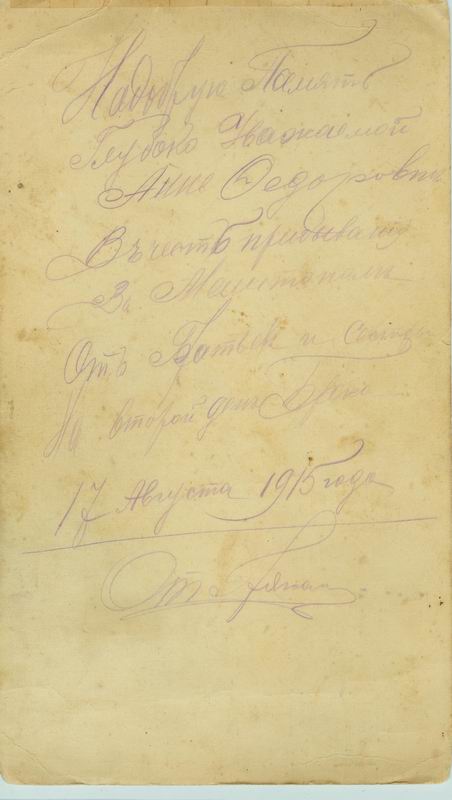 На добрую Память
Глубоко Уважаемой
Анне Федоровне
Въ честь прибыванія
Въ Мелитополь
Отъ и
На второй день Брака
17 Августа 1915 года
От